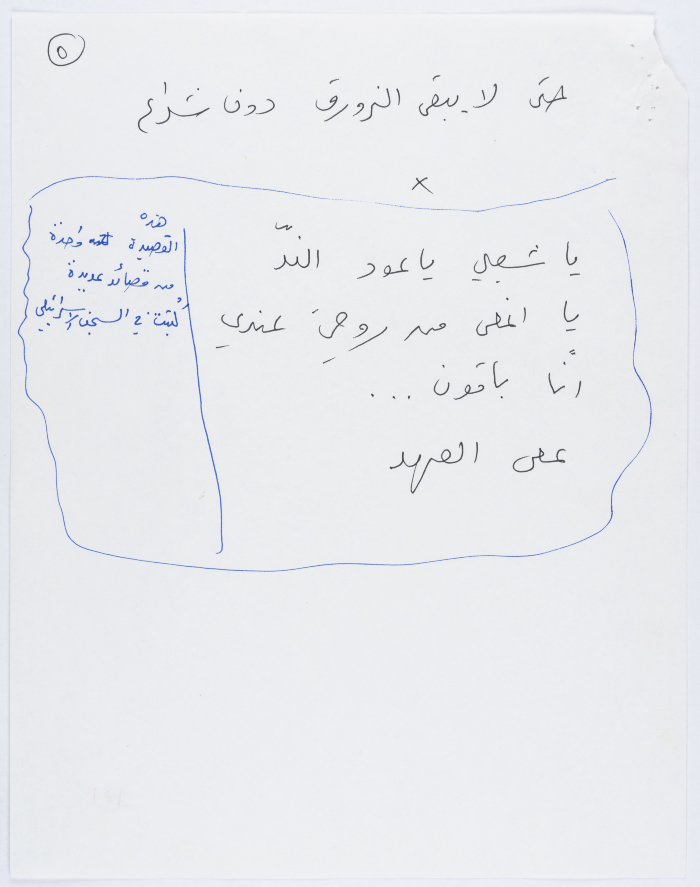 ٥
حتى لا يبقى الزورق دون شراع
×
يا شعبي يا عود الندّ
يا اغلى من روحي عندي
إنّا باقون ...
على العهد
هذه
القصيدة واحدة
من قصائد عديدة
كُتبت في السجن الاسرائيلي